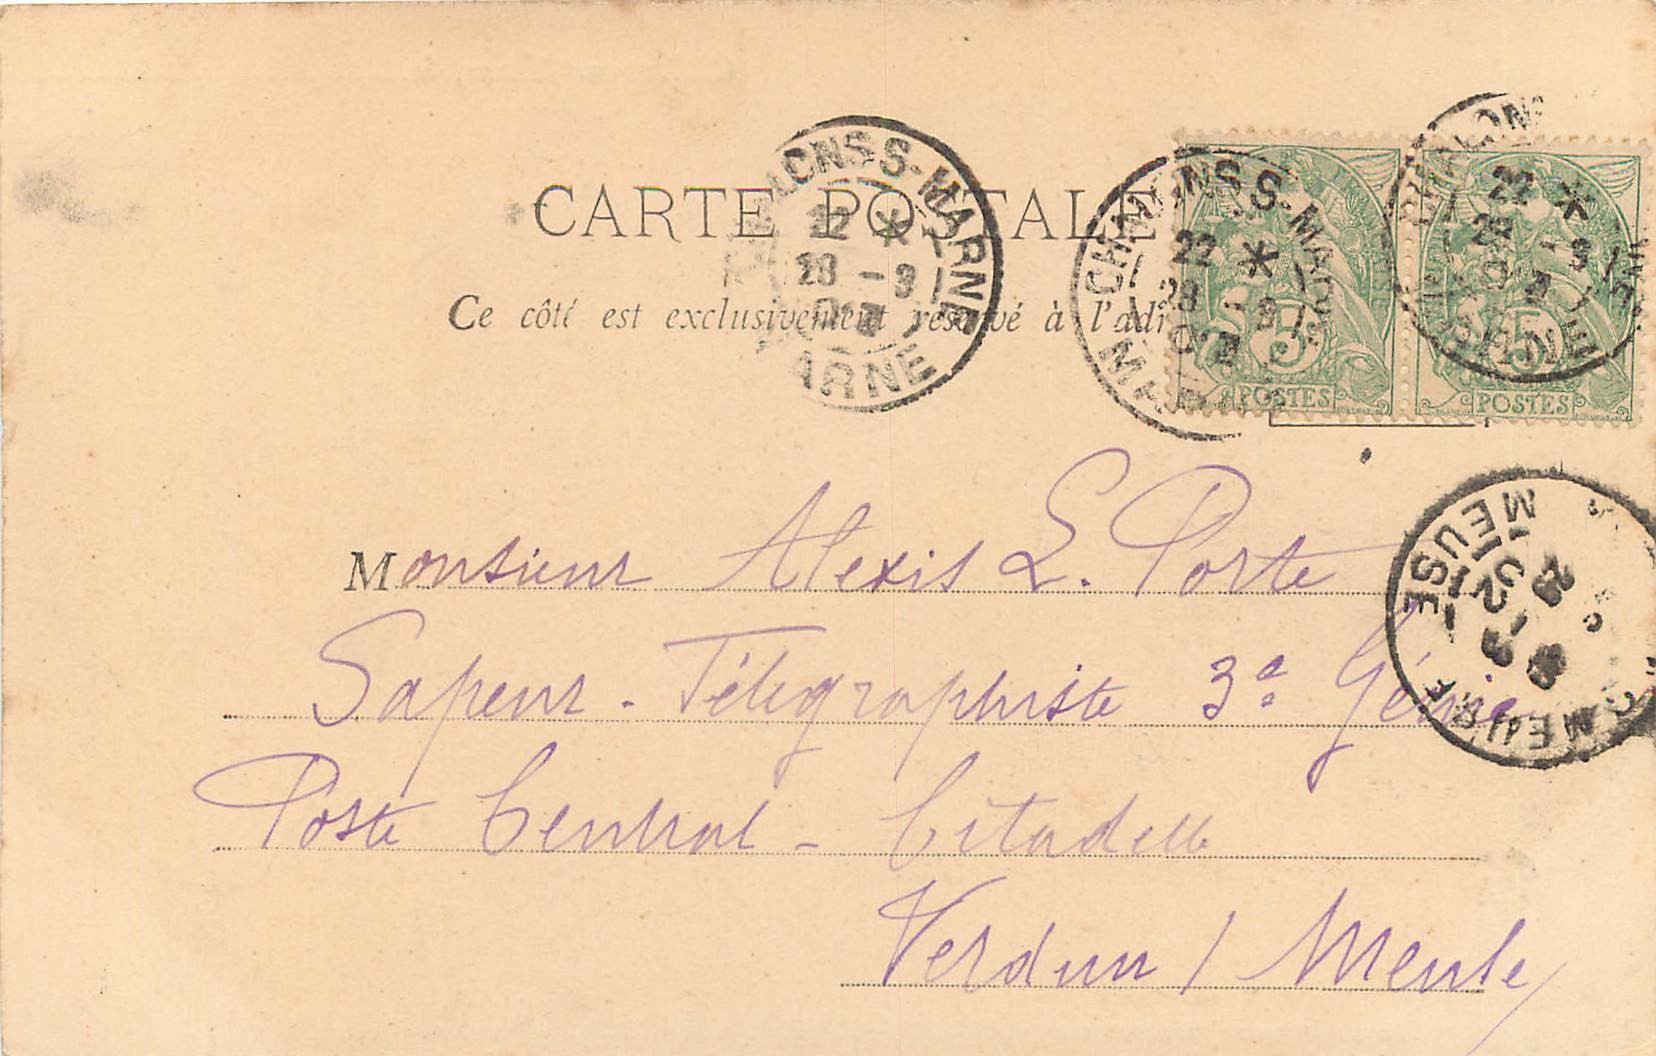 CARTE POSTALE
Ce côté est exclusivement réservé à l'adr
CHALONS S-MARNE
22 *
28 -9
02
MARNE
CHALONS S-MARNE
22 *
28 -9
02
MARNE
CHALONS
22 *
28 -9
02
MARNE
5
POSTES
5
POSTES
MEUSE
28 -9
02
Monsieur Alexis L. Porte
Sapeur - Télégraphiste 3e Génie
Poste Central - Citadelle
Verdun / Meuse